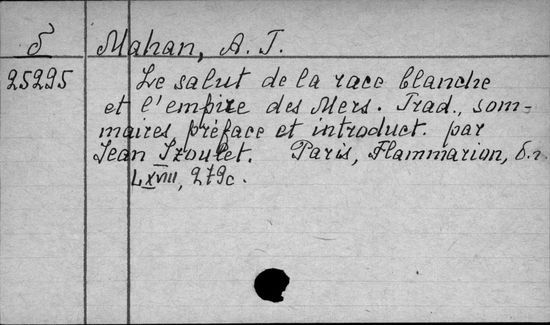 б Mahan, A. T.
25295 Le salut de la race blanche
et l'empire des Mers. Trad., som-
maires, préface et introduct. par
Jean Izoulet. Paris, Flammarion, б.г.
LXVIII, 279c.